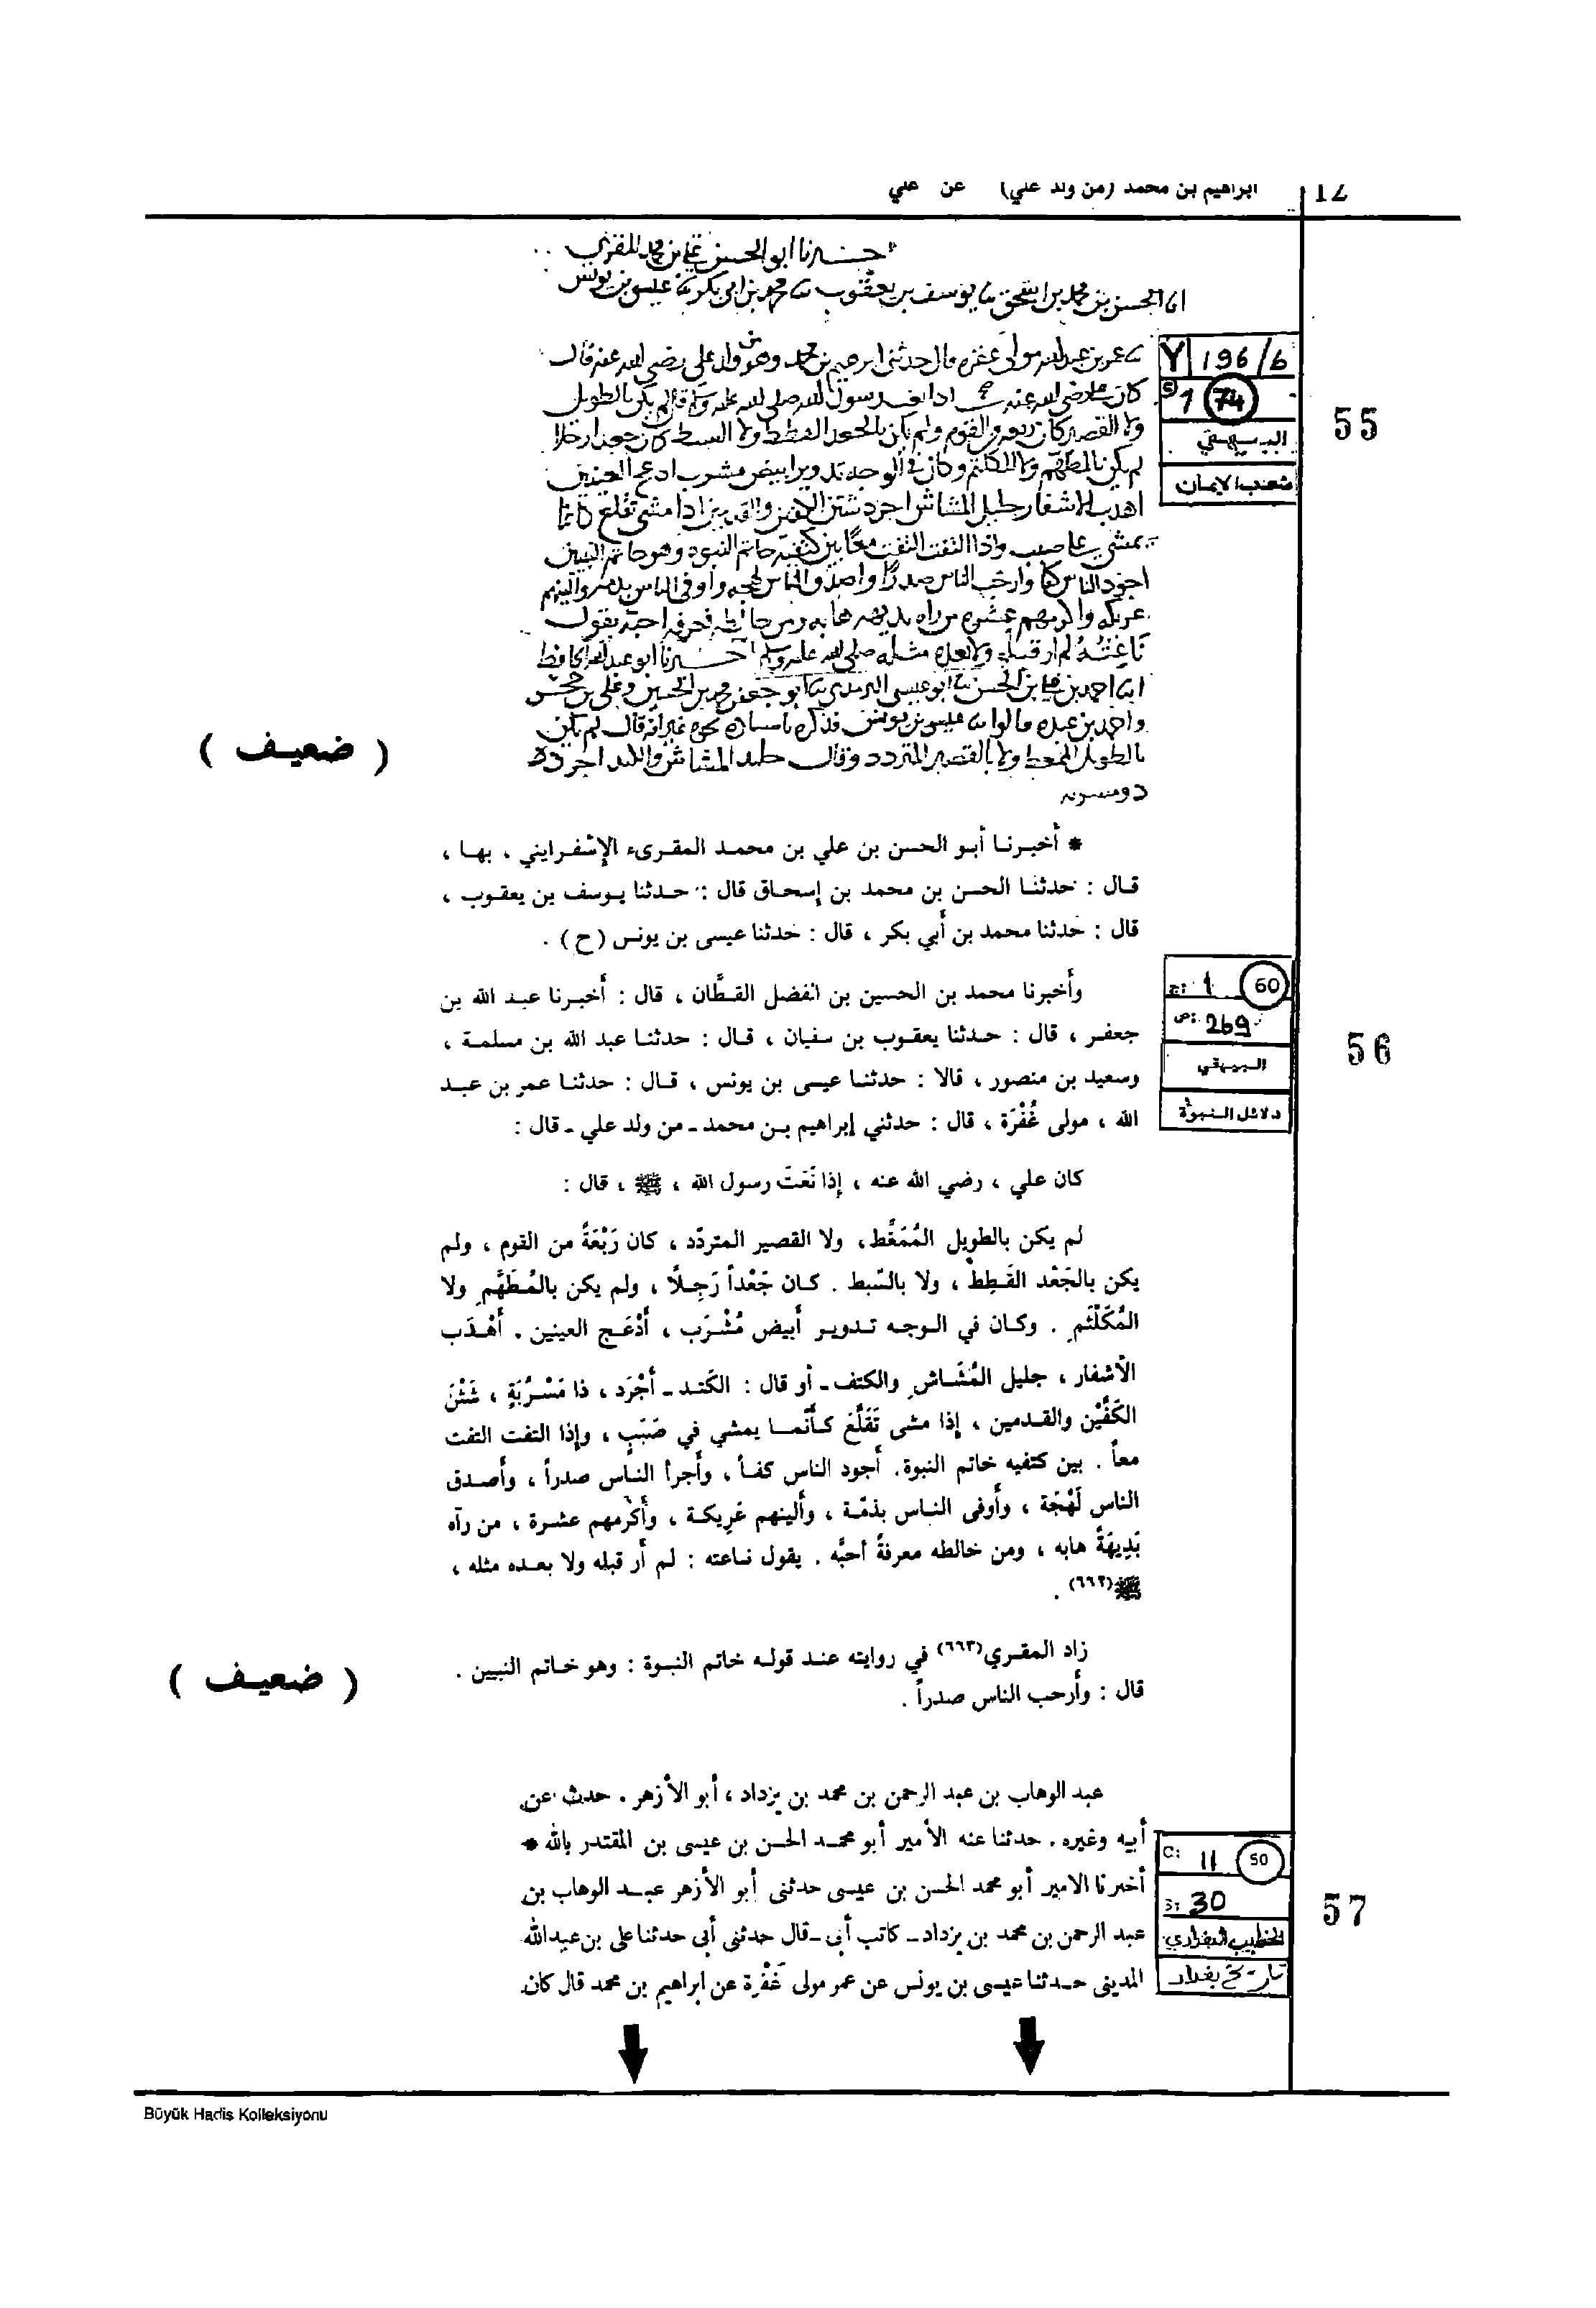 ابراهيم بن محمد (من ولد علي) عن علي
انا الحسن بن محمد بن اسحق ثنا يوسف بن يعقوب ثنا محمد بن ابى بكر ثنا عيسى بن يونس
ثنا عمر بن عبد الله مولى غفره قال حدثنى ابرهيم بن محمد وهو من ولد على رضى الله عنه قال
كان على رضى الله عنه اذا نعت رسول الله صلى الله عليه وسلم قال لم يكن بالطويل
ولا القصير كان ربعه من القوم ولم يكن بالجعد القطط ولا السبط كان جعدا رجلا
لم يكن بالمطهم ولا المكلثم وكان فى الوجه تدوير ابيض مشرب ادعج العينين
اهدب الاشفار جليل المشاش اجرد شثن الكفين والقدمين اذا مشى تقلع كانما
يمشى على صبب واذا التفت التفت معا بين كتفيه خاتم النبوه وهو خاتم النبيين
اجود الناس كفا وارحب الناس صدرا واصدق الناس لهجه واوفى الناس بذمه والينهم
عريكه واكرمهم عشره من راه بديهه هابه ومن خالطه فعرفه احبه يقول
ناعته لم ار قبله ولا بعده مثله صلى الله عليه وسلم اخبرنا ابو عبد الله الحافظ
ابو عيسى الترمذى ثنا ابو جعفر محمد بن الحسين وعلى بن حجر
واحمد بن عبده قالوا ثنا عيسى بن يونس فذكره باسناده نحوه غير انه قال لم يكن
بالطويل الممغط ولا بالقصير المتردد وقال جليل المشاش والكتد اجرد
ذو مسربه
Y 196/b
1 74
البيهقي
شعب الإيمان
55
( ضعيف )
* أخبرنا أبو الحسن بن علي بن محمد المقرىء الإشفرايني ، بها ،
قال : حدثنا الحسن بن محمد بن إسحاق قال : حدثنا يوسف بن يعقوب ،
قال : حدثنا محمد بن أبي بكر ، قال : حدثنا عيسى بن يونس (ح) .
وأخبرنا محمد بن الحسين بن الفضل القطَّان ، قال : أخبرنا عبد الله بن
جعفر ، قال : حدثنا يعقوب بن سفيان ، قال : حدثنا عبد الله بن مسلمة ،
وسعيد بن منصور ، قالا : حدثنا عيسى بن يونس ، قال : حدثنا عمر بن عبد
الله ، مولى غُفْرَة ، قال : حدثني إبراهيم بن محمد - من ولد علي - قال :
كان علي ، رضي الله عنه ، إذا نَعَتَ رسول الله ، ﷺ ، قال :
لم يكن بالطويل المُمَغَّط ، ولا القصير المتردّد ، كان رَبْعَةً من القوم ، ولم
يكن بالجَعْد القَطِط ، ولا بالسّبط . كان جَعْداً رَجِلاً ، ولم يكن بالمُطَهَّمِ ولا
المُكَلْثَمِ . وكان في الوجه تدوير أبيض مُشْرَب ، أَدْعَج العينين . أَهْدَب
الأشفار ، جليل المُشَاشِ والكتف - أو قال : الكَتد - أَجْرَد ، ذا مَسْرُبَةٍ ، شَثْنَ
الكَفَّيْن والقدمين ، إذا مشى تَقَلَّعَ كأنّما يمشي في صَبَبٍ ، وإذا التفت التفت
معاً . بين كتفيه خاتم النبوة. أجود الناس كفاً ، وأجرأ الناس صدراً ، وأصدق
الناس لَهْجَة ، وأوفى الناس بذمّة ، وألينهم عَرِيكة ، وأكرمهم عشرة ، من رآه
بَدِيهَةً هابه ، ومن خالطه معرفةً أحبَّه . يقول ناعته : لم أر قبله ولا بعده مثله ،
ﷺ(٦٦٢) .
زاد المقري(٦٦٣) في روايته عند قوله خاتم النبوة : وهو خاتم النبيين .
قال : وأرحب الناس صدراً .
ج: 1 60
ص: 269
البيهقي
دلائل النبوّة
56
( ضعيف )
عبد الوهاب بن عبد الرحمن بن محمد بن يزداد ، أبو الأزهر . حدث عن
أبيه وغيره . حدثنا عنه الأمير أبو محمد الحسن بن عيسى بن المقتدر بالله *
أخبرنا الامير أبو محمد الحسن بن عيسى حدثنى أبو الأزهر عبد الوهاب بن
عبد الرحمن بن محمد بن يزداد - كاتب أبى - قال حدثنى أبى حدثنا على بن عبد الله
المدينى حدثنا عيسى بن يونس عن عمر مولى غُفْرة عن ابراهيم بن محمد قال كان
C: 11 50
S: 30
الخطيب البغدادي
تاريخ بغداد
57
Büyük Hadis Kolleksiyonu